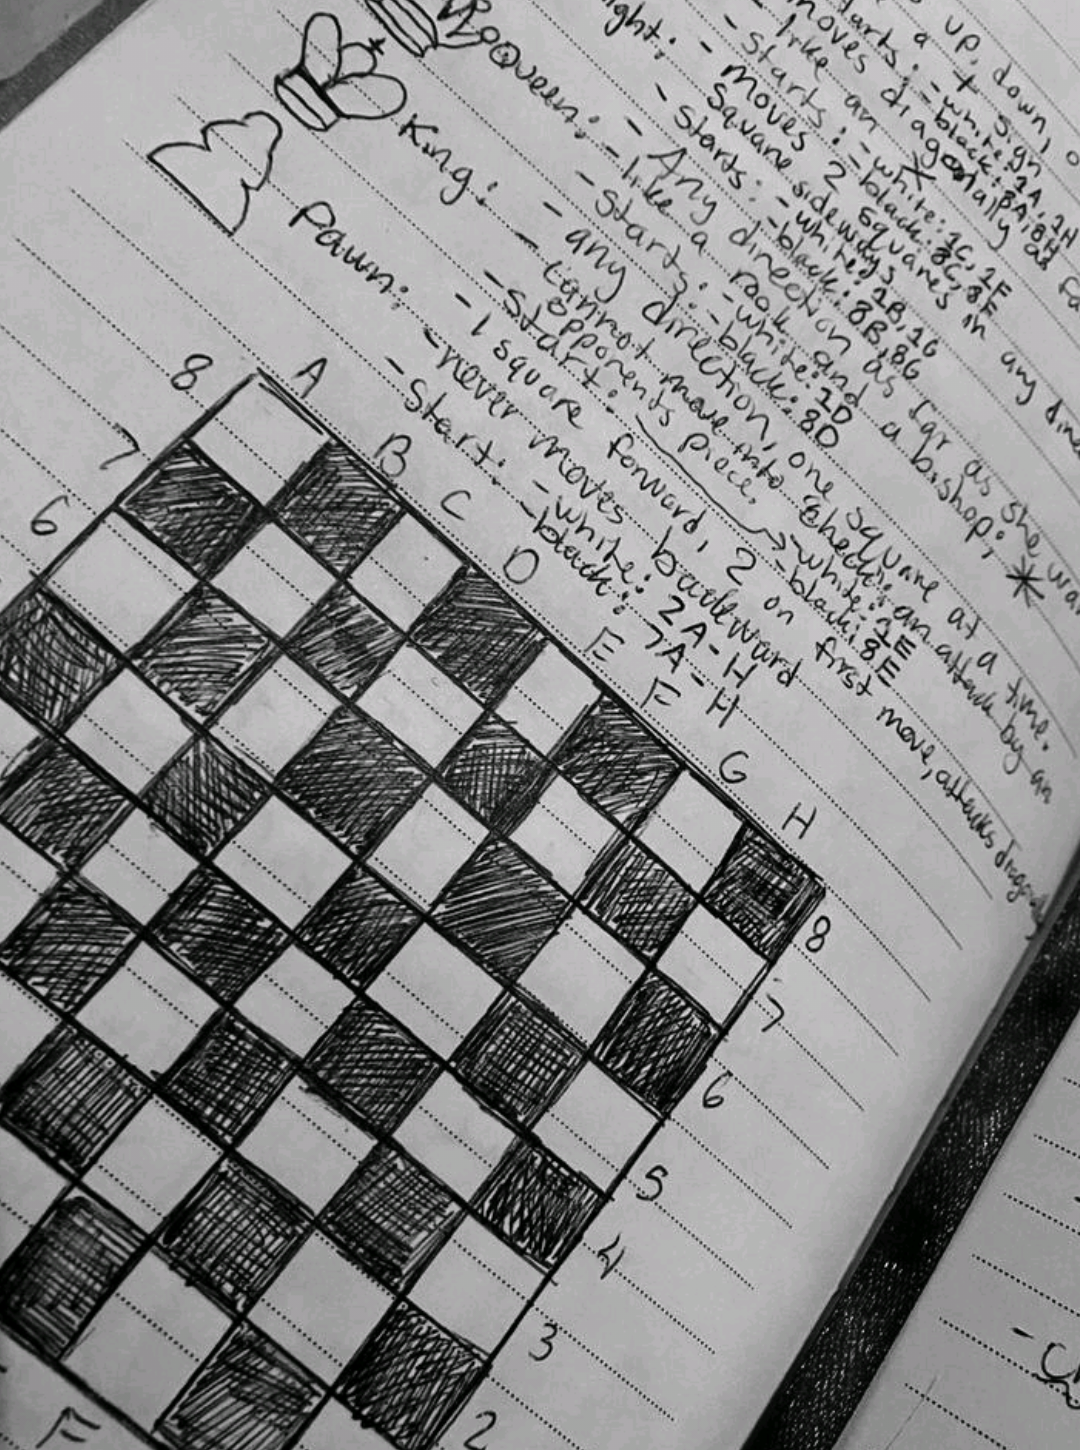 up, down, o
a + sign
starts: - white: 1A, 1H
- black: 8A, 8H
moves diagonally as fa
- like an X
- starts: - white: 1C, 1F
- black: 8C, 8F
ight: - moves 2 squares in any dire
square sideways
- starts: - white: 1B, 1G
- black: 8B, 8G
Queen: - Any direction as far as she wa
- like a rook and a bishop; *
- starts: - white: 1D
- black: 8D
King: - any direction, one square at a time.
- cannot move into check: an attack by an
opponents piece.
- Start: - white: 1E
- black: 8E
Pawn: - 1 square forward, 2 on first move, attacks
- never moves backward
- Start: - white: 2A-H
- black: 7A-H
8 A B C D E F G H
7
6
8
7
6
5
4
3
2
F